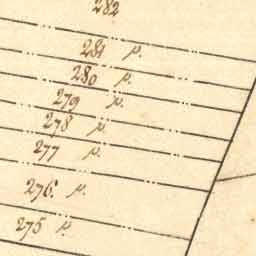 282
281 p.
280 p.
279 p.
278 p.
277 p.
276. p.
275 p.